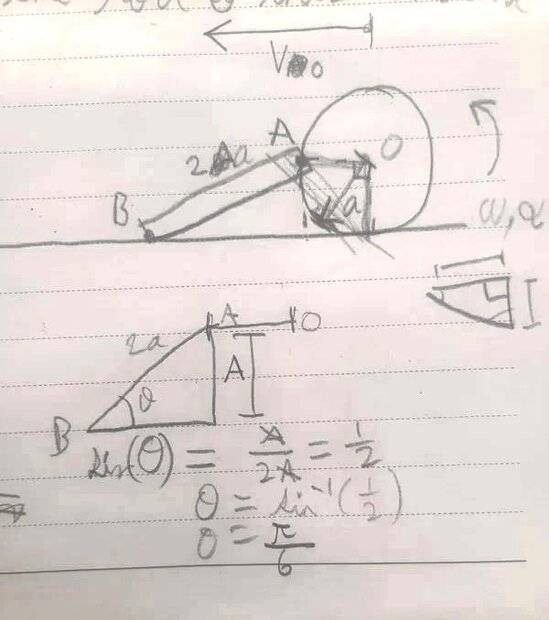 V₀
A
O
2a
B
a
ω, α
A
O
2a
A
θ
B
sin(θ) = A/2A = 1/2
θ = sin⁻¹(1/2)
θ = π/6